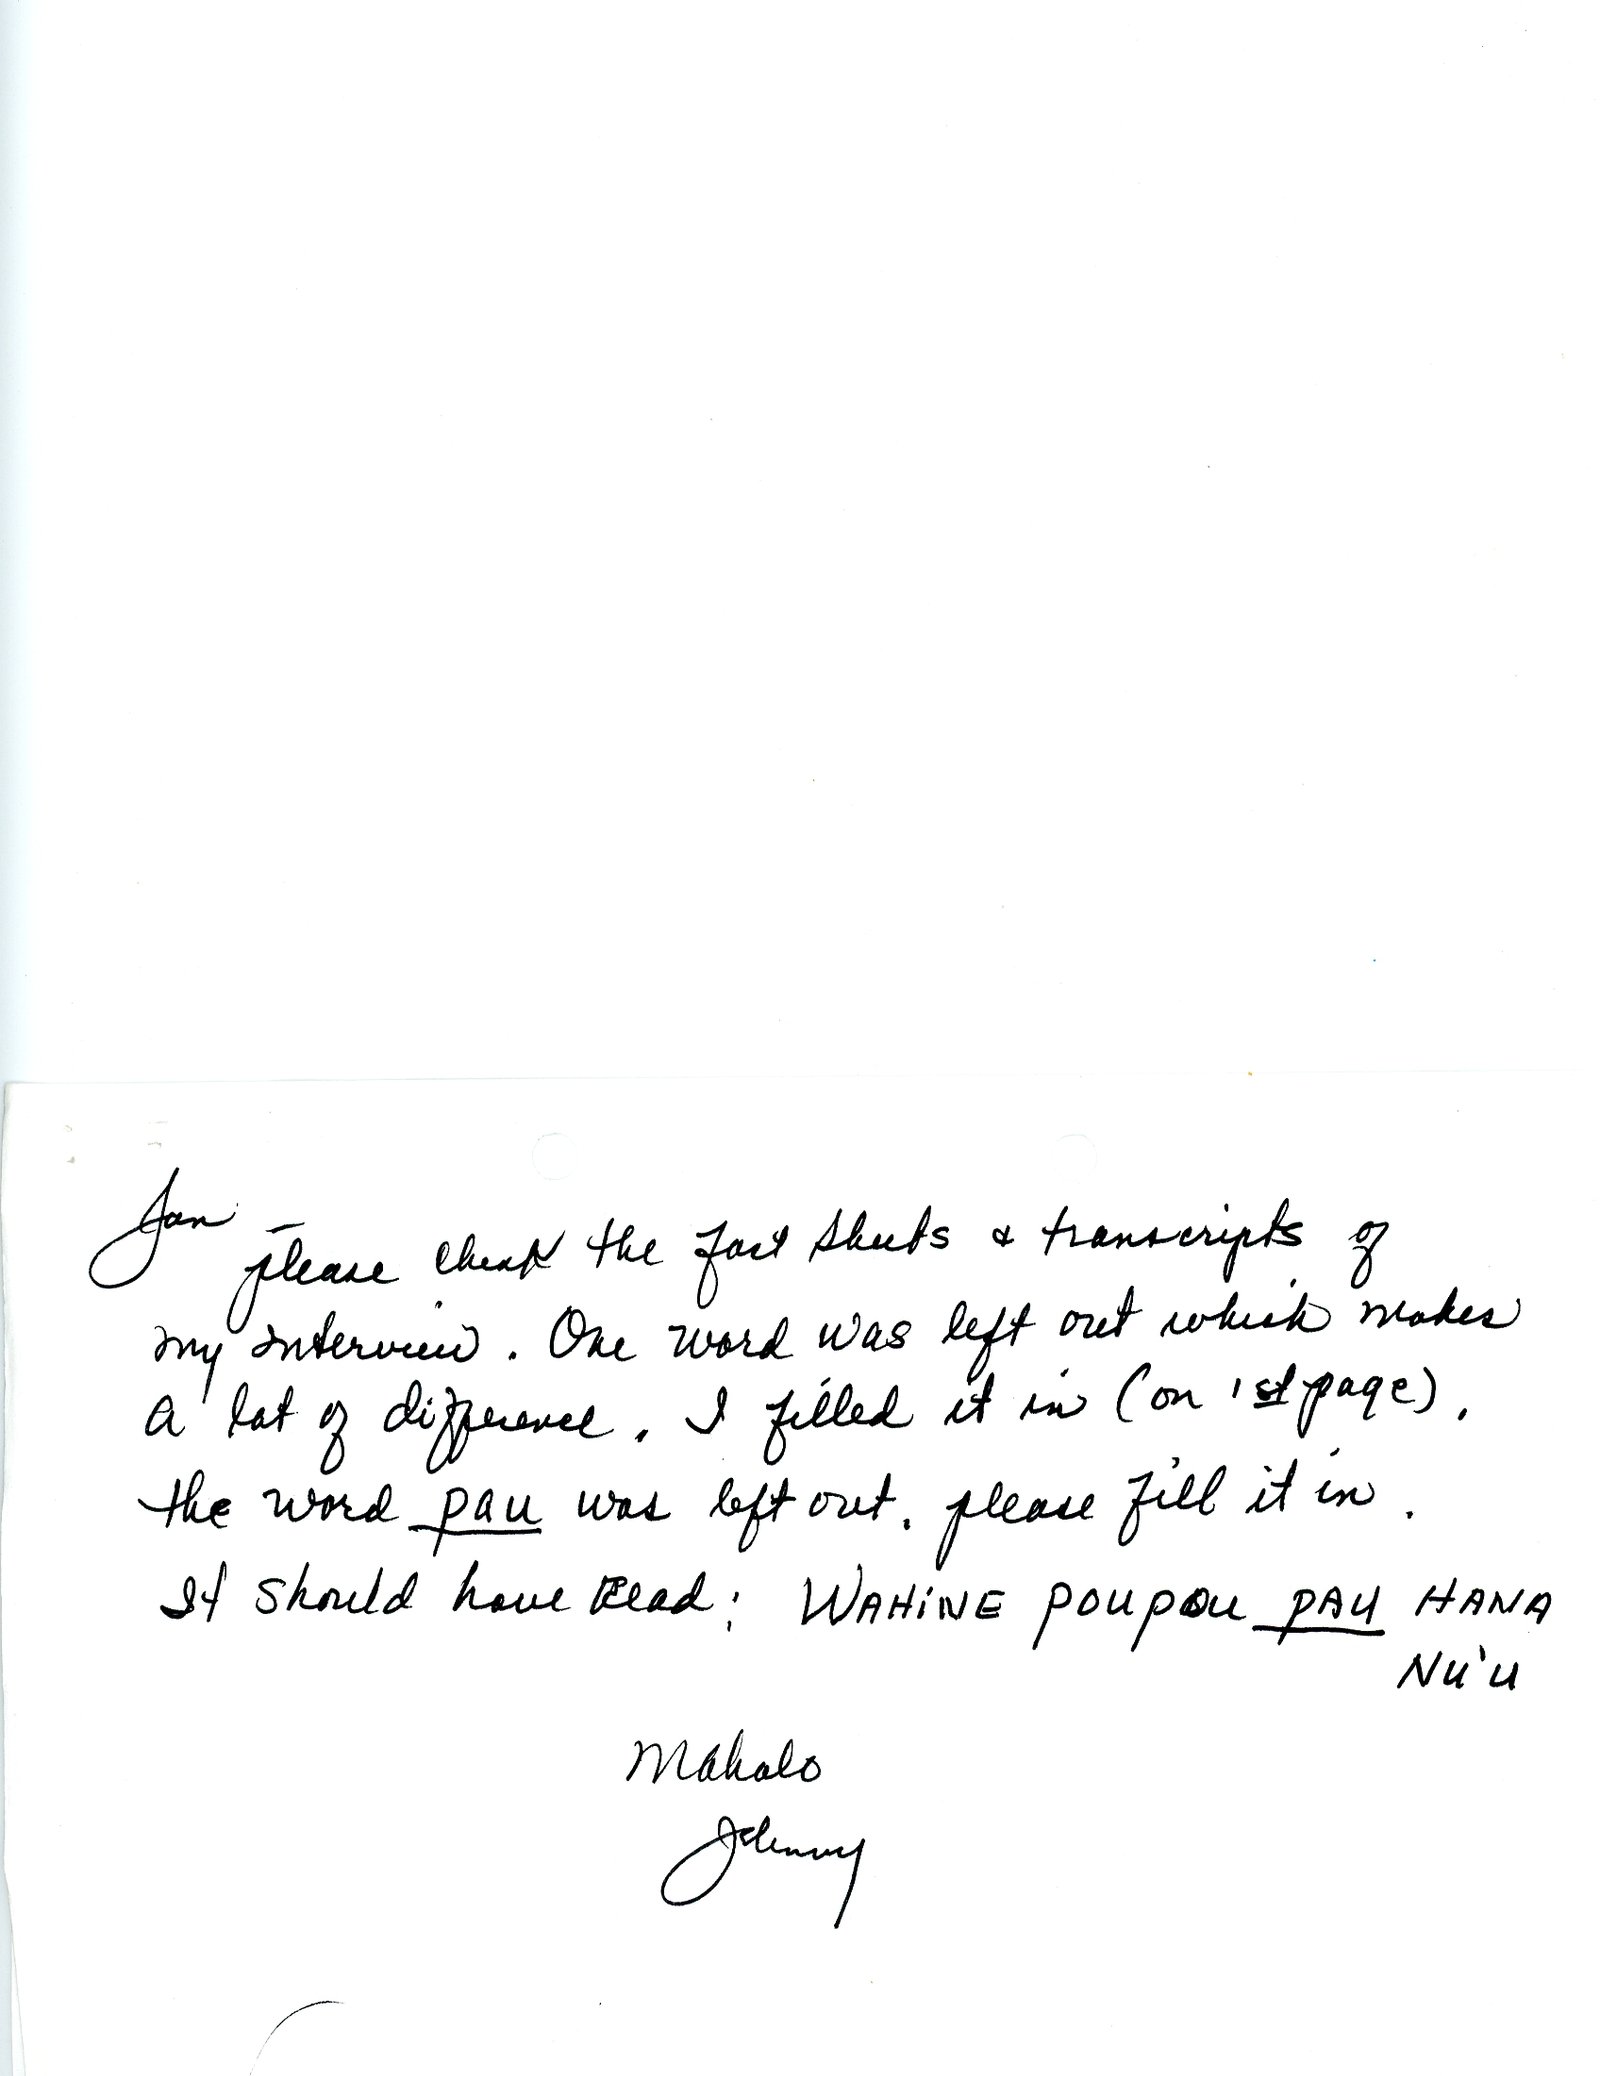 Jan –
please check the fact sheets & transcripts of
my interview. One word was left out which makes
a lot of difference. I filled it in (on 1st page).
the word pau was left out. please fill it in.
It should have read: WAHINE POUPOU PAU HANA
NU'U
Mahalo
Johnny